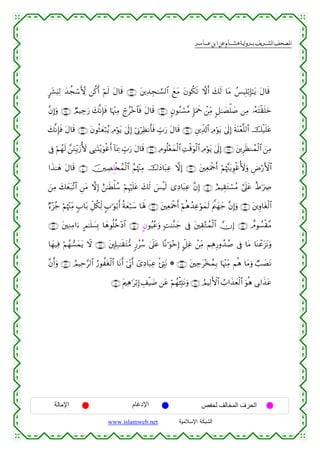 المصحف الشريف برواية هشام عن ابن عامر
قَالَ يَٰٓإِبْلِيسُ مَا لَكَ أَلَّا تَكُونَ مَعَ ٱلسَّٰجِدِينَ ۝ قَالَ لَمْ أَكُن لِّأَسْجُدَ لِبَشَرٍ
خَلَقْتَهُۥ مِن صَلْصَٰلٍ مِّنْ حَمَإٍ مَّسْنُونٍ ۝ قَالَ فَٱخْرُجْ مِنْهَا فَإِنَّكَ رَجِيمٌ ۝ وَإِنَّ
عَلَيْكَ ٱللَّعْنَةَ إِلَىٰ يَوْمِ ٱلدِّينِ ۝ قَالَ رَبِّ فَأَنظِرْنِىٓ إِلَىٰ يَوْمِ يُبْعَثُونَ ۝ قَالَ فَإِنَّكَ
مِنَ ٱلْمُنظَرِينَ ۝ إِلَىٰ يَوْمِ ٱلْوَقْتِ ٱلْمَعْلُومِ ۝ قَالَ رَبِّ بِمَآ أَغْوَيْتَنِى لَأُزَيِّنَنَّ لَهُمْ فِى
ٱلْأَرْضِ وَلَأُغْوِيَنَّهُمْ أَجْمَعِينَ ۝ إِلَّا عِبَادَكَ مِنْهُمُ ٱلْمُخْلِصِينَ ۝ قَالَ هَٰذَا
صِرَٰطٌ عَلَىَّ مُسْتَقِيمٌ ۝ إِنَّ عِبَادِى لَيْسَ لَكَ عَلَيْهِمْ سُلْطَٰنٌ إِلَّا مَنِ ٱتَّبَعَكَ مِنَ
ٱلْغَاوِينَ ۝ وَإِنَّ جَهَنَّمَ لَمَوْعِدُهُمْ أَجْمَعِينَ ۝ لَهَا سَبْعَةُ أَبْوَٰبٍ لِّكُلِّ بَابٍ مِّنْهُمْ جُزْءٌ
مَّقْسُومٌ ۝ إِنَّ ٱلْمُتَّقِينَ فِى جَنَّٰتٍ وَعِيُونٍ ۝ ٱدْخُلُوهَا بِسَلَٰمٍ ءَامِنِينَ ۝
وَنَزَعْنَا مَا فِى صُدُورِهِم مِّنْ غِلٍّ إِخْوَٰنًا عَلَىٰ سُرُرٍ مُّتَقَٰبِلِينَ ۝ لَا يَمَسُّهُمْ فِيهَا
نَصَبٌ وَمَا هُم مِّنْهَا بِمُخْرَجِينَ ۝ * نَبِّئْ عِبَادِىٓ أَنِّىٓ أَنَا ٱلْغَفُورُ ٱلرَّحِيمُ ۝ وَأَنَّ
عَذَابِى هُوَ ٱلْعَذَابُ ٱلْأَلِيمُ ۝ وَنَبِّئْهُمْ عَن ضَيْفِ إِبْرَٰهِيمَ ۝
الحرف المخالف لحفص الإدغام الإمالة
الشبكة الإسلامية www.islamweb.net